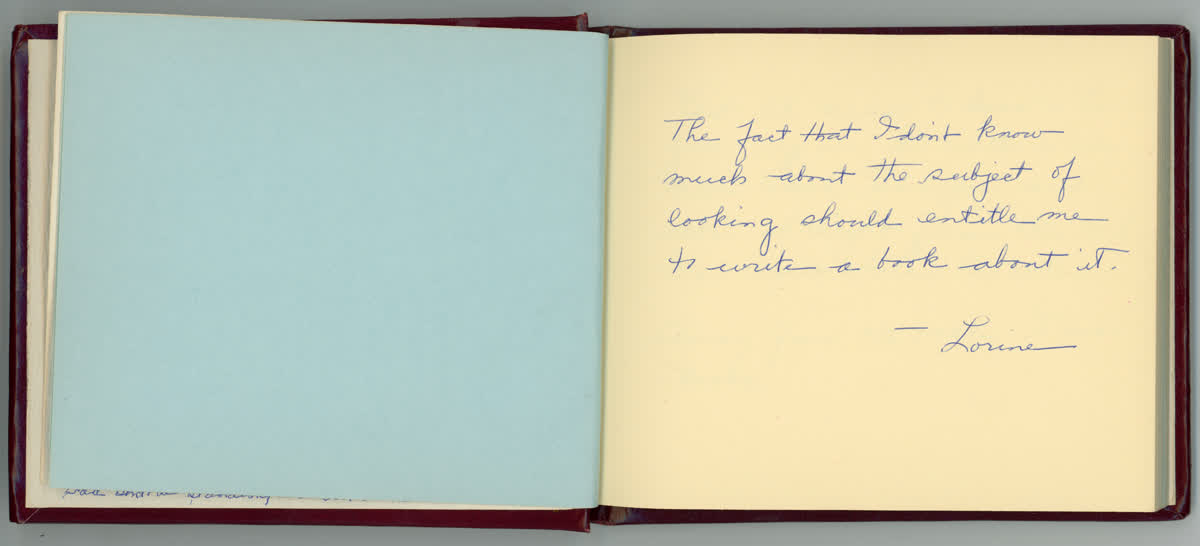 The fact that I don't know
much about the subject of
looking should entitle me
to write a book about it.
— Lorine